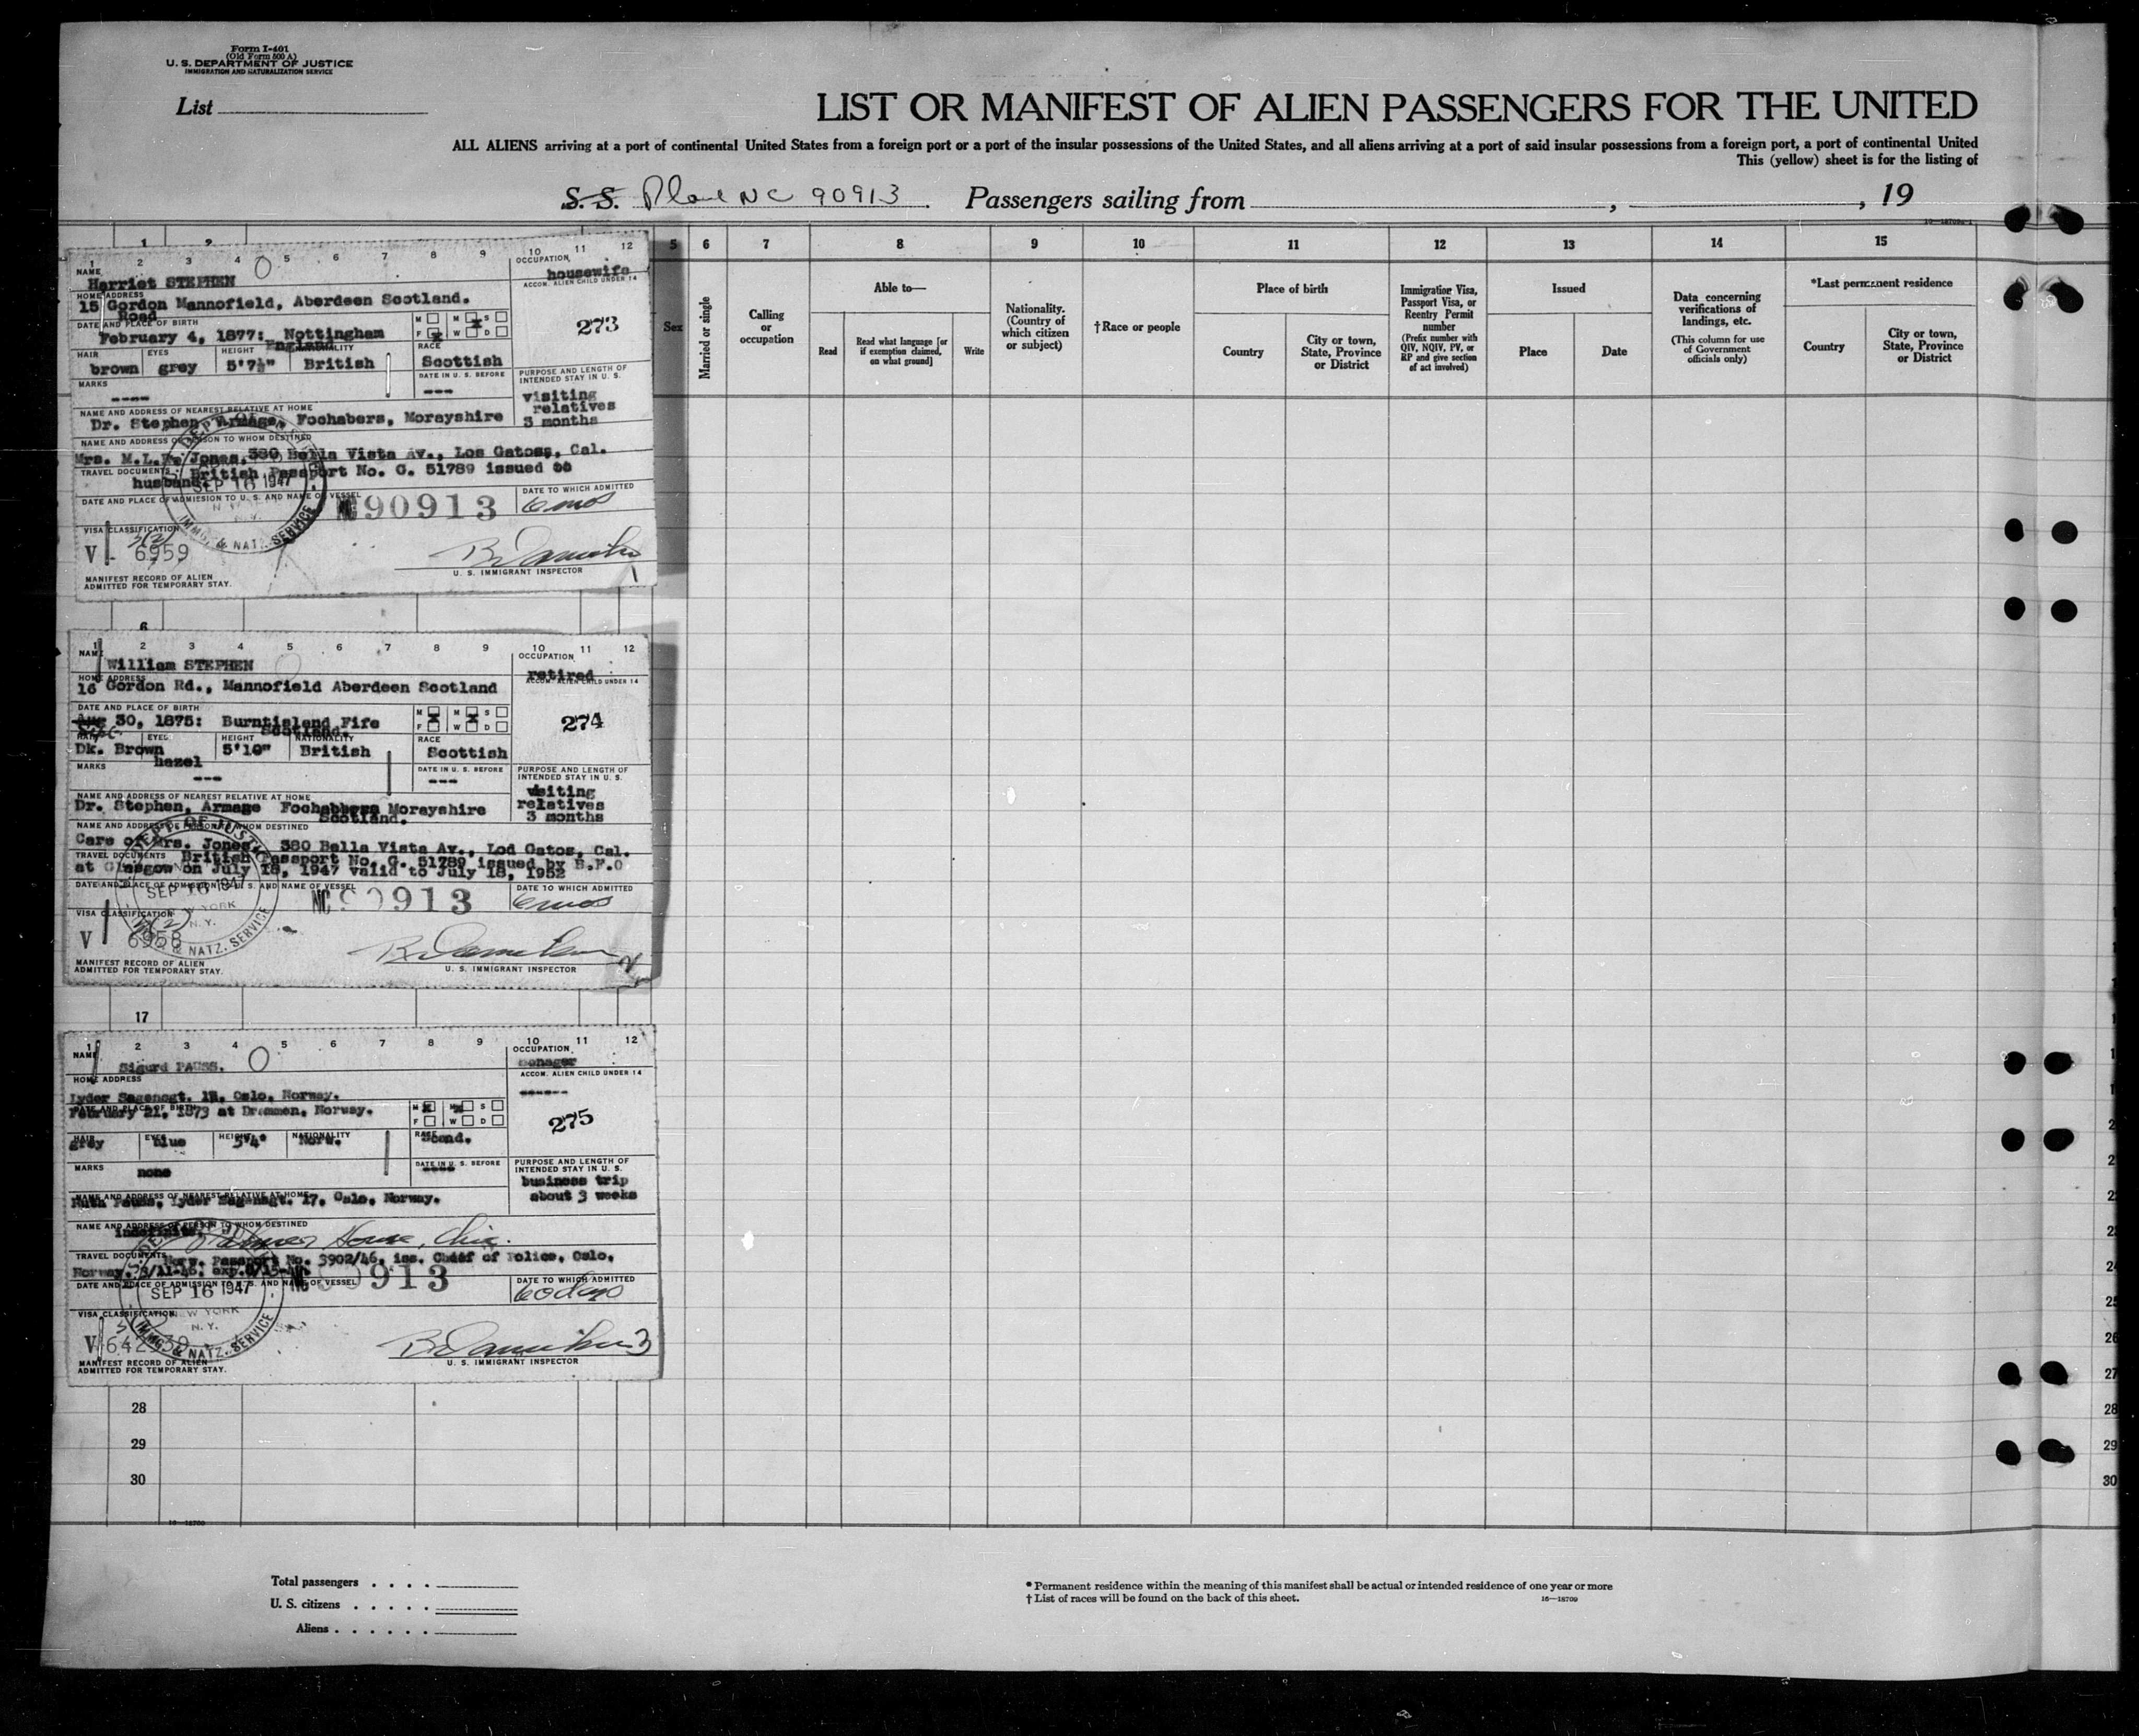 Form I-401
(Old Form 500 A)
U. S. DEPARTMENT OF JUSTICE
IMMIGRATION AND NATURALIZATION SERVICE
List
LIST OR MANIFEST OF ALIEN PASSENGERS FOR THE UNITED
ALL ALIENS arriving at a port of continental United States from a foreign port or a port of the insular possessions of the United States, and all aliens arriving at a port of said insular possessions from a foreign port, a port of continental United
This (yellow) sheet is for the listing of
S. S. Plane NC 90913 Passengers sailing from , , 19
1 2 5 6 7 8 9 10 11 12 13 14 15
Sex
Married or single
Calling or occupation
Able to—
Read
Read what language [or if exemption claimed, on what ground]
Write
Nationality. (Country of which citizen or subject)
†Race or people
Place of birth
Country
City or town, State, Province or District
Immigration Visa, Passport Visa, or Reentry Permit number
(Prefix number with QIV, NQIV, PV, or RP and give section of act involved)
Issued
Place
Date
Data concerning verifications of landings, etc.
(This column for use of Government officials only)
*Last permanent residence
Country
City or town, State, Province or District
1 2 3 4 5 6 7 8 9 10 11 12
NAME
Harriet STEPHEN
OCCUPATION
housewife
ACCOM. ALIEN CHILD UNDER 14
HOME ADDRESS
15 Gordon Mannofield, Aberdeen Scotland.
Road
DATE AND PLACE OF BIRTH
February 4, 1877: Nottingham
England
M F M W S D
273
HAIR EYES HEIGHT NATIONALITY RACE
brown grey 5'7½" British Scottish
MARKS
----
DATE IN U. S. BEFORE
---
PURPOSE AND LENGTH OF INTENDED STAY IN U. S.
visiting
relatives
3 months
NAME AND ADDRESS OF NEAREST RELATIVE AT HOME
Dr. Stephen, Armage, Fochabers, Morayshire
NAME AND ADDRESS OF PERSON TO WHOM DESTINED
Mrs. M.L. Jones, 380 Bella Vista Av., Los Gatos, Cal.
TRAVEL DOCUMENTS
British Passport No. G. 51789 issued to
husband.
SEP 16 1947
DATE AND PLACE OF ADMISSION TO U. S. AND NAME OF VESSEL
NC90913
DATE TO WHICH ADMITTED
6 mos
VISA CLASSIFICATION
3(2)
V - 6959
IMMG. & NATZ. SERVICE
U. S. IMMIGRANT INSPECTOR
1
MANIFEST RECORD OF ALIEN
ADMITTED FOR TEMPORARY STAY.
6
1 2 3 4 5 6 7 8 9 10 11 12
NAME
William STEPHEN
OCCUPATION
retired
ACCOM. ALIEN CHILD UNDER 14
HOME ADDRESS
16 Gordon Rd., Mannofield Aberdeen Scotland
DATE AND PLACE OF BIRTH
Aug 30, 1875: Burntisland Fife
Scotland.
M F M W S D
274
HAIR EYES HEIGHT NATIONALITY RACE
Dk. Brown hazel 5'10" British Scottish
MARKS
---
DATE IN U. S. BEFORE
---
PURPOSE AND LENGTH OF INTENDED STAY IN U. S.
visiting
relatives
3 months
NAME AND ADDRESS OF NEAREST RELATIVE AT HOME
Dr. Stephen, Armage Fochabbers Morayshire
Scotland.
NAME AND ADDRESS OF PERSON TO WHOM DESTINED
Care of Mrs. Jones, 380 Bella Vista Av., Lod Gatos, Cal.
TRAVEL DOCUMENTS
British Passport No. G. 51789 issued by B.F.O
at Glasgow on July 18, 1947 valid to July 18, 1952
DATE AND PLACE OF ADMISSION TO U. S. AND NAME OF VESSEL
SEP 16 1947
NEW YORK
N. Y.
NC90913
DATE TO WHICH ADMITTED
6 mos
VISA CLASSIFICATION
3(2)
V 6958
IMMG. & NATZ. SERVICE
U. S. IMMIGRANT INSPECTOR
2
MANIFEST RECORD OF ALIEN
ADMITTED FOR TEMPORARY STAY.
17
1 2 3 4 5 6 7 8 9 10 11 12
NAME
Sigurd PAUSS.
OCCUPATION
manager
ACCOM. ALIEN CHILD UNDER 14
------
HOME ADDRESS
Lyder Sagensgt. 17, Oslo, Norway.
DATE AND PLACE OF BIRTH
February 21, 1873 at Drammen, Norway.
M F M W S D
275
HAIR EYES HEIGHT NATIONALITY RACE
grey blue 5'4" Norw. Scand.
MARKS
none
DATE IN U. S. BEFORE
----
PURPOSE AND LENGTH OF INTENDED STAY IN U. S.
business trip
about 3 weeks
NAME AND ADDRESS OF NEAREST RELATIVE AT HOME
Ruth Pauss, Lyder Sagensgt. 17, Oslo, Norway.
NAME AND ADDRESS OF PERSON TO WHOM DESTINED
indefinite. Palmer House, Chic.
TRAVEL DOCUMENTS
Norw. Passport No. 3902/46, iss. Chief of Police, Oslo,
Norway,
DATE AND PLACE OF ADMISSION TO U. S. AND NAME OF VESSEL
SEP 16 1947
NEW YORK
N. Y.
NC90913
DATE TO WHICH ADMITTED
60 days
VISA CLASSIFICATION
IMMG. & NATZ. SERVICE
U. S. IMMIGRANT INSPECTOR
3
MANIFEST RECORD OF ALIEN
ADMITTED FOR TEMPORARY STAY.
23
24
25
26
27
28 28
29 29
30 30
Total passengers
U. S. citizens
Aliens
* Permanent residence within the meaning of this manifest shall be actual or intended residence of one year or more
† List of races will be found on the back of this sheet.
16—18709